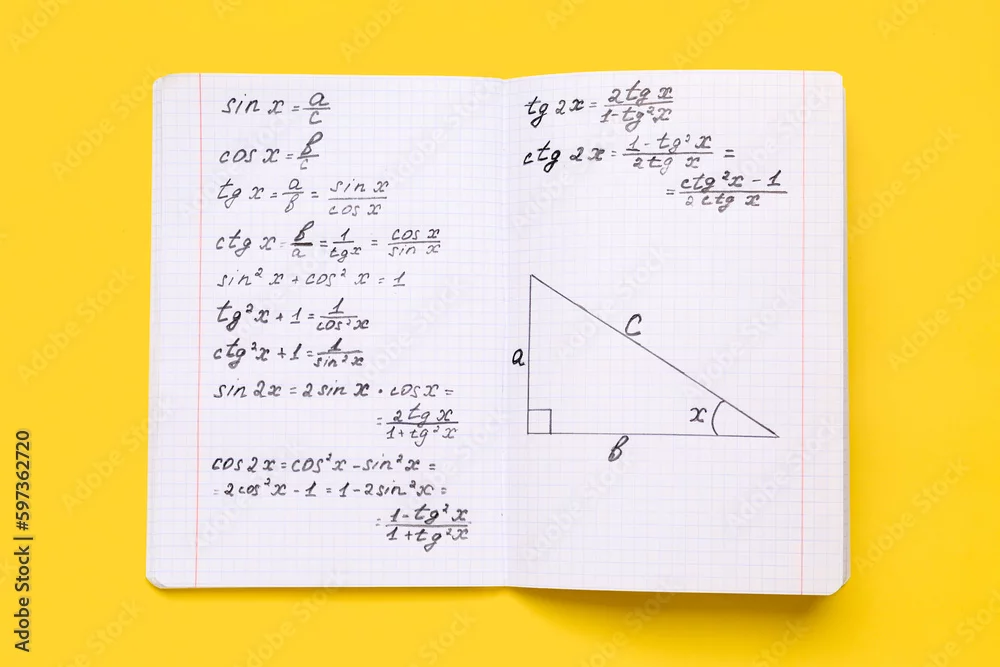 sin x = a/c
cos x = b/c
tg x = a/b = sin x/cos x
ctg x = b/a = 1/tg x = cos x/sin x
sin² x + cos² x = 1
tg²x + 1 = 1/cos²x
ctg²x + 1 = 1/sin²x
sin 2x = 2 sin x · cos x =
= 2 tg x/1 + tg² x
cos 2x = cos²x - sin²x =
= 2cos²x - 1 = 1 - 2sin²x =
= 1 - tg²x/1 + tg²x
tg 2x = 2 tg x/1 - tg²x
ctg 2x = 1 - tg²x/2 tg x =
= ctg²x - 1/2 ctg x
c
a
x
b
Adobe Stock | #597362720
Adobe Stock